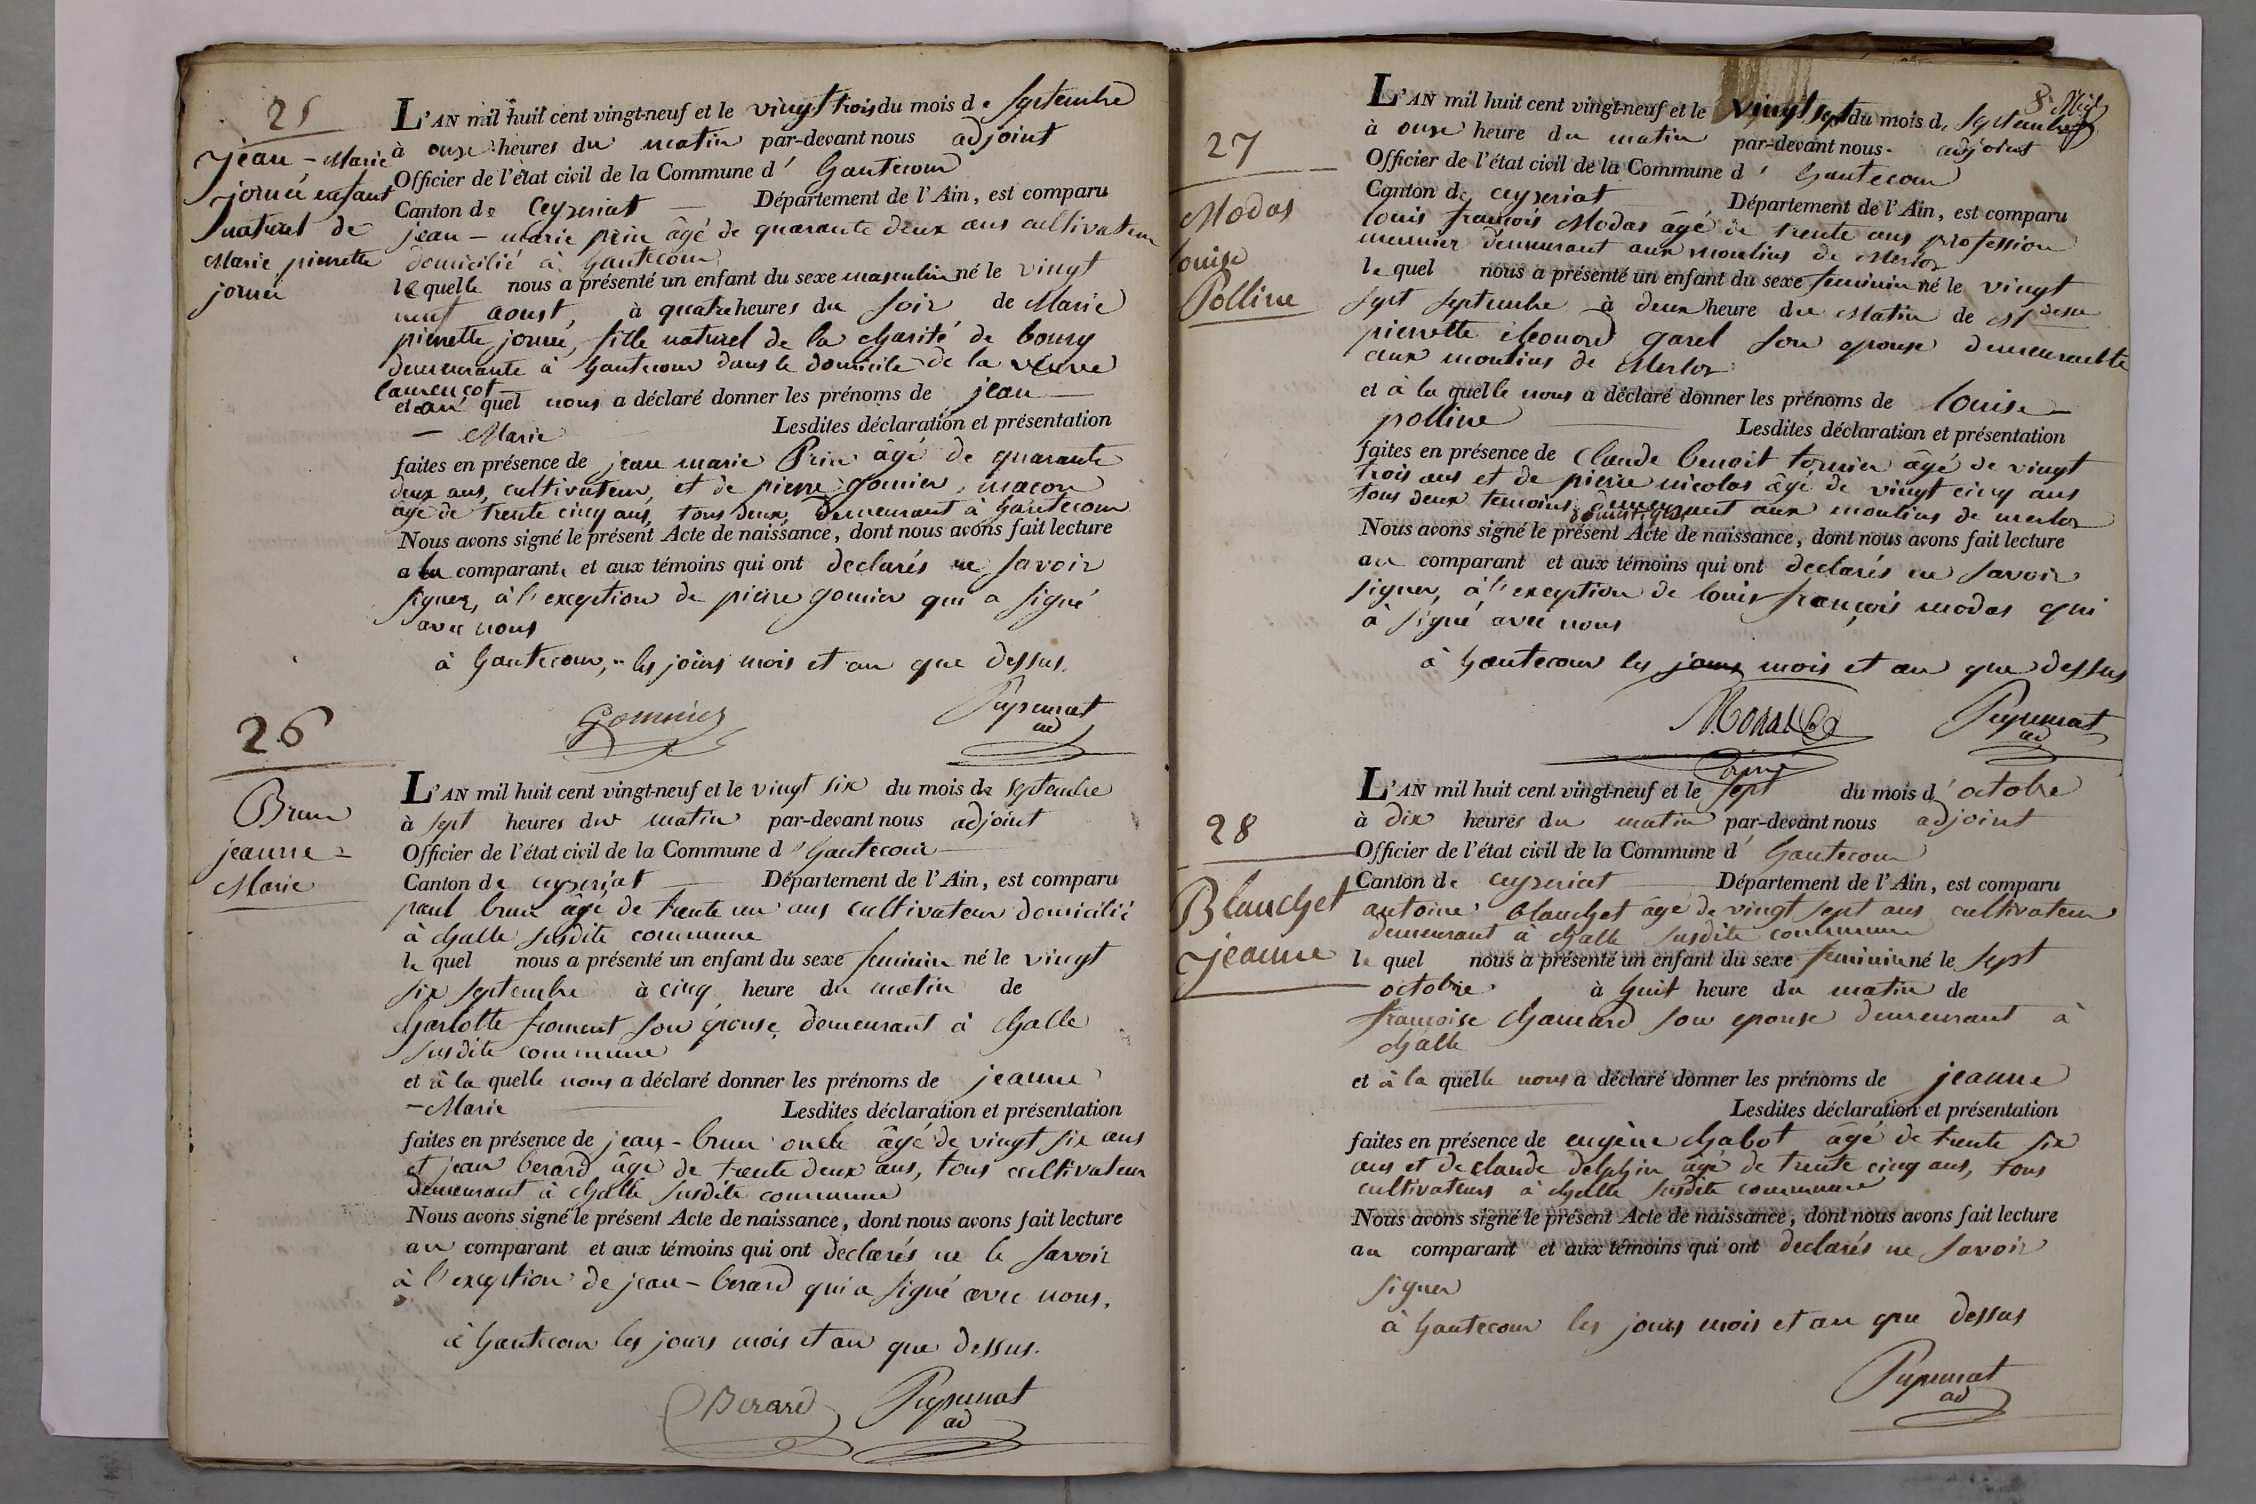 25
jean-Marie
jornié enfant
naturel de
Marie pierrette
jornié
L'AN mil huit cent vingt-neuf et le vingt trois du mois de septembre
à onze heures du matin par-devant nous adjoint
Officier de l'état civil de la Commune d'hautecour
Canton de ceyzeriat Département de l'Ain, est comparu
jean-marie prin âgé de quarante deux ans cultivateur
domicilié à hautecour
lequelle nous a présenté un enfant du sexe masculin né le vingt
neuf aoust, à quatre heures du soir de Marie
pierrette jornié, fille naturel de la charité de bourg
demeurante à hautecour dans le domicile de la veuve
laurençot
et au quel nous a déclaré donner les prénoms de jean
-Marie Lesdites déclaration et présentation
faites en présence de jean marie Prin âgé de quarante
deux ans, cultivateur, et de pierre gomier, maçon
âgé de trente cinq ans, tous deux demeurant à hautecour
Nous avons signé le présent Acte de naissance, dont nous avons fait lecture
a la comparante et aux témoins qui ont declarés ne savoir
signer, à l'exception de pierre gomier qui a signé
avec nous
à hautecour, les jours mois et an que dessus.
Gomier Pupunat
ad
26
Brun
jeanne-
Marie
L'AN mil huit cent vingt-neuf et le vingt six du mois de septembre
à sept heures du matin par-devant nous adjoint
Officier de l'état civil de la Commune d'hautecour
Canton de ceyzeriat Département de l'Ain, est comparu
paul brun âgé de trente un ans cultivateur domicilié
à challe susdite commune
le quel nous a présenté un enfant du sexe feminin né le vingt
six septembre à cinq heure du matin de
charlotte froment son épouse, demeurant à challe
susdite commune
et à la quelle nous a déclaré donner les prénoms de jeanne
-Marie Lesdites déclaration et présentation
faites en présence de jean-brun oncle âgé de vingt six ans
et jean berard âgé de trente deux ans, tous cultivateur
demeurant à challe susdite commune
Nous avons signé le présent Acte de naissance, dont nous avons fait lecture
au comparant et aux témoins qui ont declarés ne le savoir
à l'exception de jean-berard qui a signé avec nous.
à hautecour les jours mois et an que dessus.
Berard Pupunat
ad
27
Modas
louise
Polline
L'AN mil huit cent vingt-neuf et le vingt sept du mois de septembre
à onze heure du matin par-devant nous adjoint
Officier de l'état civil de la Commune d'hautecour
Canton de ceyzeriat Département de l'Ain, est comparu
louis françois Modas âgé de trente ans profession
meunier demeurant aux moulins de Merloz
le quel nous a présenté un enfant du sexe feminin né le vingt
sept septembre à deux heure du Matin de
pierrette éleonord garel son epouse demeurantte
aux moulins de Merloz
et à la quelle nous a déclaré donner les prénoms de louise
polline Lesdites déclaration et présentation
faites en présence de Claude benoit tornier âgé de vingt
trois ans et de pierre nicolas âgé de vingt cinq ans
tous deux temoins demeurant aux moulins de merloz
domestiques
Nous avons signé le présent Acte de naissance, dont nous avons fait lecture
au comparant et aux témoins qui ont declarés ne savoir
signer, à l'exception de louis françois modas qui
a signé avec nous
à hautecour les jours mois et an que dessus
Modas Pupunat
ad
28
Blanchet
jeanne
L'AN mil huit cent vingt-neuf et le sept du mois d'octobre
à dix heures du matin par-devant nous adjoint
Officier de l'état civil de la Commune d'hautecour
Canton de ceyzeriat Département de l'Ain, est comparu
antoine blanchet âgé de vingt sept ans cultivateur
demeurant à challe susdite commune
le quel nous a présenté un enfant du sexe feminin né le sept
octobre à huit heure du matin de
françoise chanard son epouse demeurant à
challe
et à la quelle nous a déclaré donner les prénoms de jeanne
Lesdites déclaration et présentation
faites en présence de eugène chabot âgé de trente six
ans et de claude delphin âgé de trente cinq ans, tous
cultivateurs à challe susdite commune
Nous avons signé le présent Acte de naissance, dont nous avons fait lecture
au comparant et aux témoins qui ont declarés ne savoir
signer
à hautecour les jours mois et an que dessus
Pupunat
ad